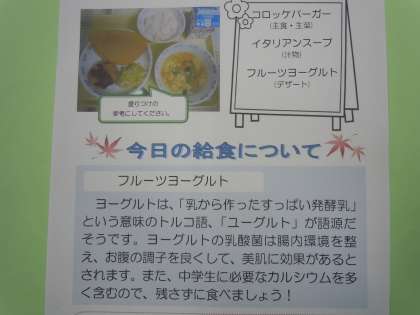 コロッケバーガー
（主食・主菜）
イタリアンスープ
（汁物）
フルーツヨーグルト
（デザート）
盛りつけの
参考にしてください。
今日の給食について
フルーツヨーグルト
ヨーグルトは、「乳から作ったすっぱい発酵乳」
という意味のトルコ語、「ユーグルト」が語源だ
そうです。ヨーグルトの乳酸菌は腸内環境を整
え、お腹の調子を良くして、美肌に効果があると
されます。また、中学生に必要なカルシウムを多
く含むので、残さずに食べましょう！